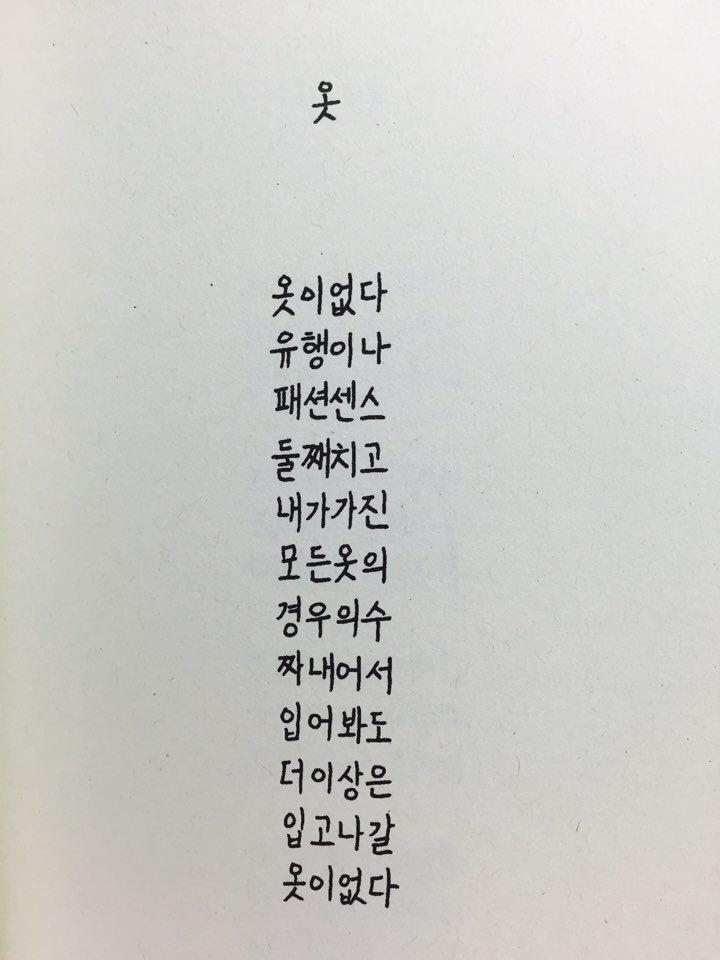 옷
옷이없다
유행이나
패션센스
둘째치고
내가가진
모든옷의
경우의수
짜내어서
입어봐도
더이상은
입고나갈
옷이없다